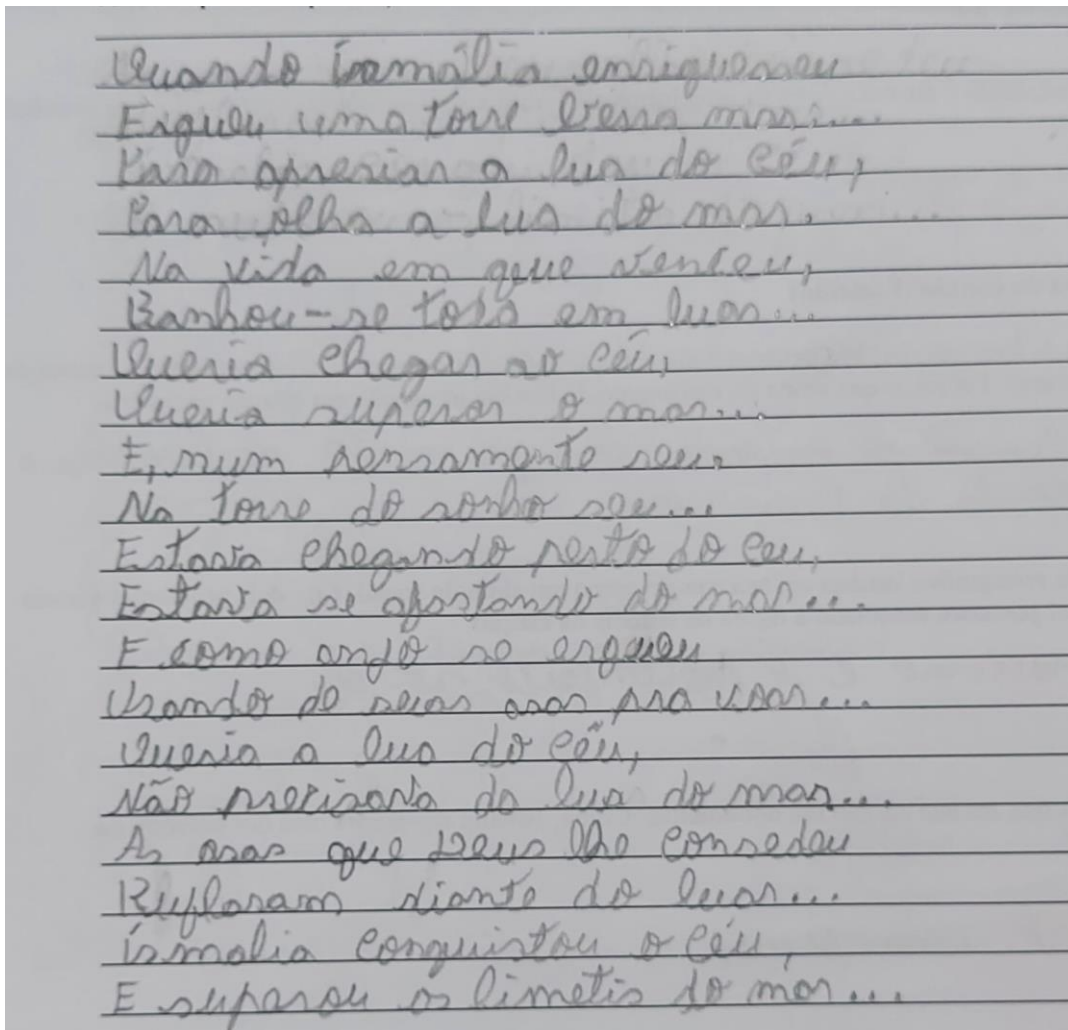 Quando ismália enriquesseu
Ergueu uma torre vessa mar....
Para apresiar a lua do céu,
Para olha a lua do mar.
Na vida em que venceu,
Banhou-se toda em luar...
Queria chegar ao céu,
Queria superar o mar...
E, num pensamento seu,
Na torre do sonho seu...
Estava chegando perto do ceu,
Estava se afastando do mar...
E como anjo se ergueu
Usando de seus asas pra voar...
Queria a lua do céu,
Não precisava da lua do mar...
As asas que Deus lhe consedeu
Ruflaram diante do luar...
ismalia conquistou o céu,
E superou os limetis do mar...